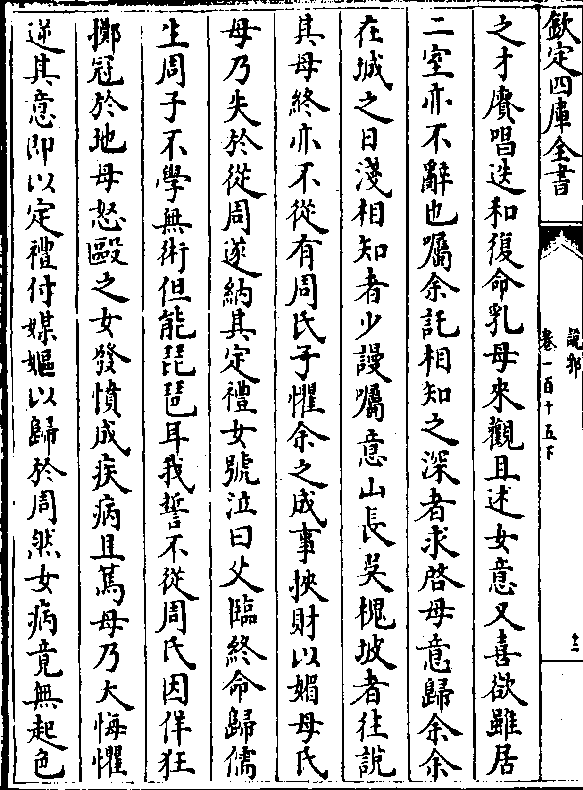 欽定四庫全書
說郛
卷一百十五下
十二
之才賡唱迭和復命乳母來觀且述女意又喜欲雖居
二室亦不辭也囑余託相知之深者求啓母意歸余余
在城之日淺相知者少謾囑意山長吳槐坡者往說
其母終亦不從有周氏子懼余之成事挾財以媚母氏
母乃失於從周遂納其定禮女號泣曰父臨終命歸儒
生周子不學無術但能琵琶耳我誓不從周氏因佯狂
擲冠於地母怒毆之女發憤成疾病且篤母乃大悔懼
遂其意即以定禮付媒嫗以歸於周然女病竟無起色